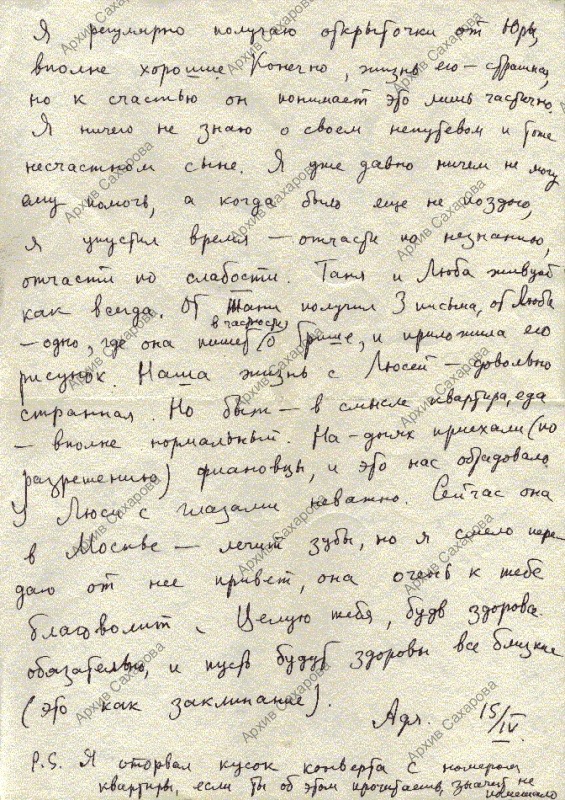 Я регулярно получаю открыточки от Юры,
вполне хорошие. Конечно, жизнь его – страшная,
но к счастью он понимает это лишь частично.
Я ничего не знаю о своем непутевом и тоже
несчастном сыне. Я уже давно ничем не могу
ему помочь, а когда было еще не поздно,
я упустил время – отчасти по незнанию,
отчасти по слабости. Таня и Люба живут
как всегда. От Тани получил 3 письма, от Любы
– одно, где она пишет (в частности) о Грише, и приложила его
рисунок. Наша жизнь с Люсей – довольно
странная. Но быт – в смысле квартира, еда
– вполне нормальный. На-днях приехали (по
разрешению) фиановцы, и это нас обрадовало.
У Люси с глазами неважно. Сейчас она
в Москве – лечит зубы, но я смело пере-
даю от нее привет, она очень к тебе
благоволит. Целую тебя, будь здорова
обязательно, и пусть будут здоровы все близкие
(это как заклинание).
Адя. 15/IV.
P.S. Я оторвал кусок конверта с номером
квартиры, если ты об этом прочитаешь, значит не
помешало
Архив Сахарова